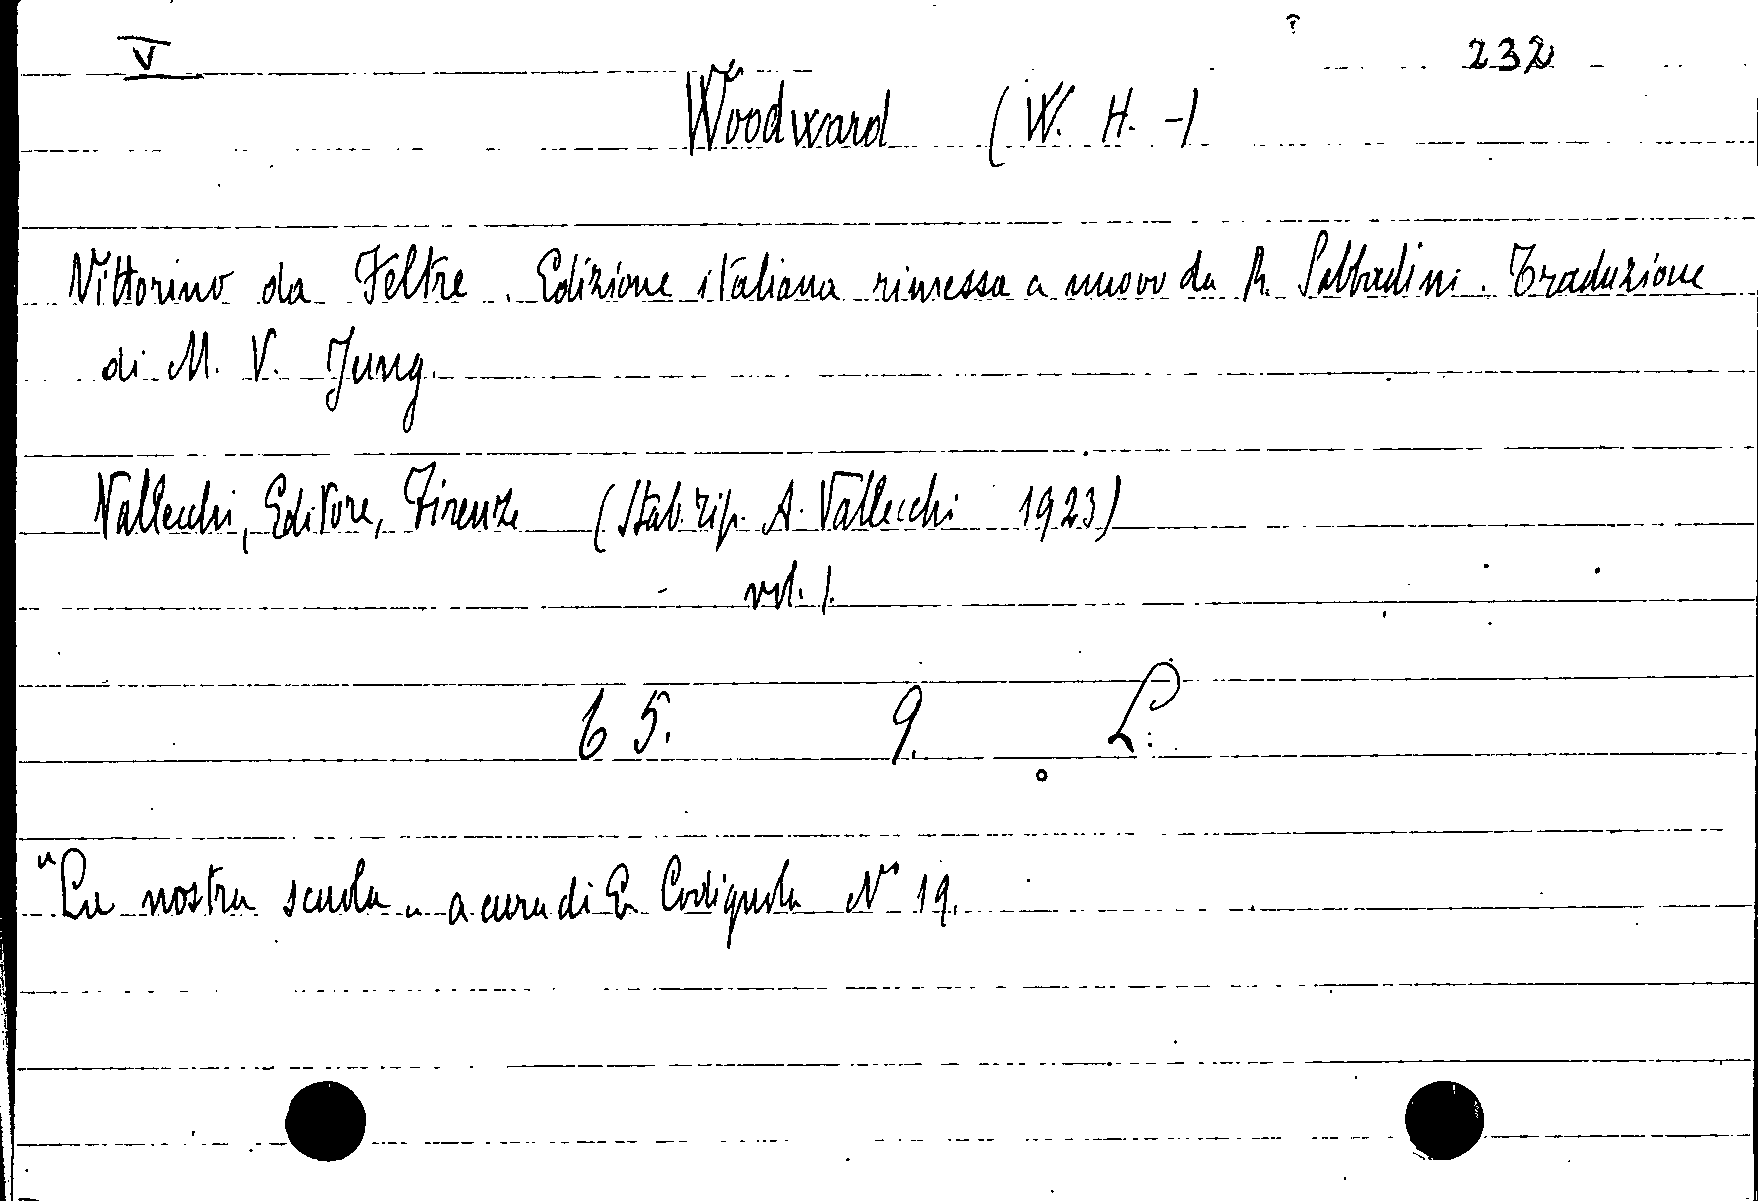 V 232
Woodward (W. H. -)
Vittorino da Feltre. Edizione italiana rimessa a nuovo da R. Sabbadini. Traduzione
di M. V. Jung.
Vallecchi, Editore, Firenze (Stab. Tip. A. Vallecchi 1923)
vol. 1.
65. 9. L.
"La nostra scuola" a cura di E. Codignola N° 19.